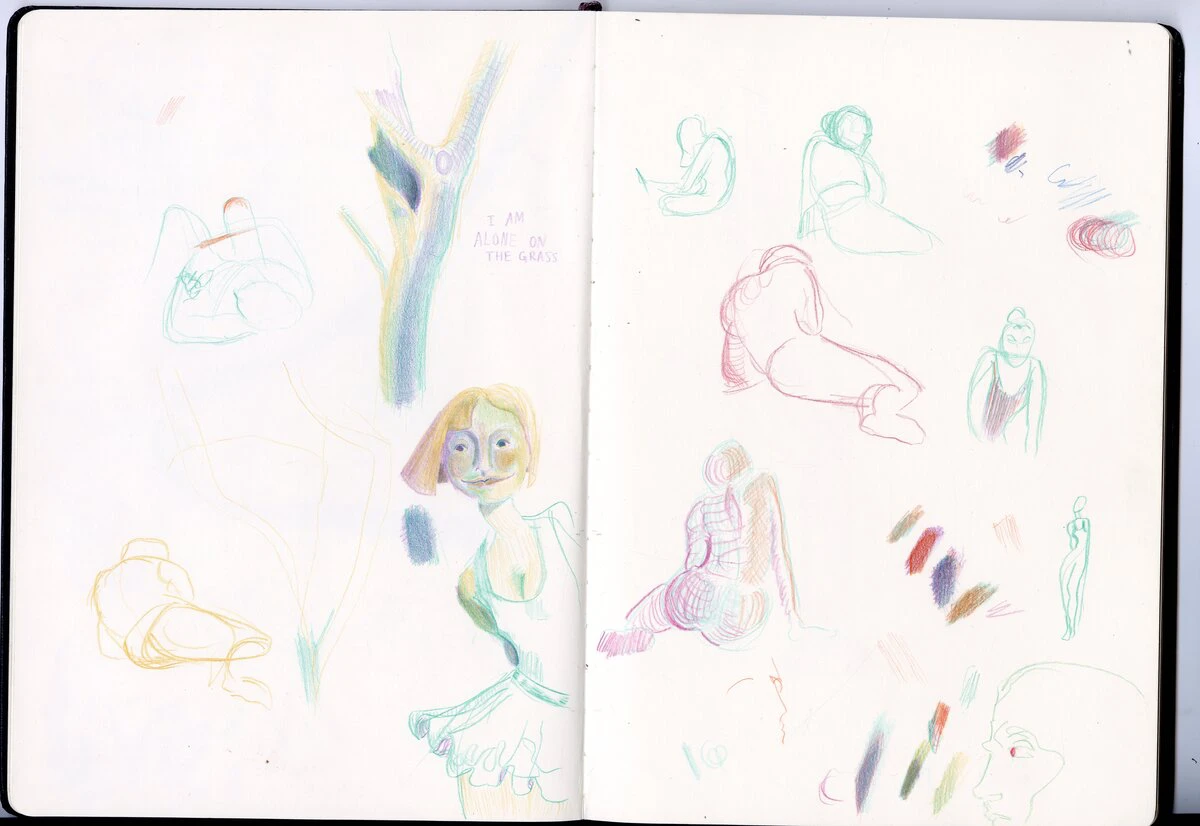 I AM
ALONE ON
THE GRASS